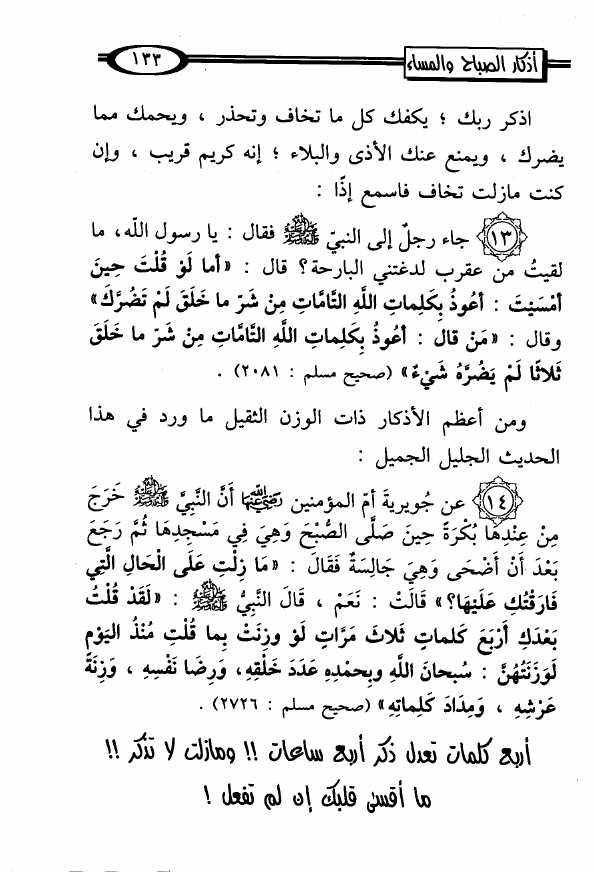 أذكار الصباح والمساء
١٣٣
اذكر ربك ؛ يكفك كل ما تخاف وتحذر ، ويحمك مما
يضرك ، ويمنع عنك الأذى والبلاء ؛ إنه كريم قريب ، وإن
كنت مازلت تخاف فاسمع إذًا :
١٣ جاء رجلٌ إلى النبيّ ﷺ فقال : يا رسول الله، ما
لقيتُ من عقرب لدغتني البارحة؟ قال : «أما لَوْ قُلْتَ حِينَ
أمْسَيْتَ : أعُوذُ بِكَلِماتِ اللَّهِ التَّامَّاتِ مِنْ شَرّ ما خَلَقَ لَمْ تَضُرَّكَ»
وقال : «مَنْ قال : أعُوذُ بِكَلِماتِ اللَّهِ التَّامَّاتِ مِنْ شَرّ ما خَلَقَ
ثَلاثًا لَمْ يَضُرَّهُ شَيْءٌ» (صحيح مسلم : ٢٠٨١) .
ومن أعظم الأذكار ذات الوزن الثقيل ما ورد في هذا
الحديث الجليل الجميل :
١٤ عن جُويريةَ أمّ المؤمنين رضي الله عنها أَنَّ النَّبِيَّ ﷺ خَرَجَ
مِنْ عِنْدِهَا بُكْرَةً حِينَ صَلَّى الصُّبْحَ وَهِيَ فِي مَسْجِدِهَا ثُمَّ رَجَعَ
بَعْدَ أَنْ أَضْحَى وَهِيَ جَالِسَةٌ فَقَالَ : «مَا زِلْتِ عَلَى الْحَالِ الَّتِي
فَارَقْتُكِ عَلَيْهَا؟» قَالَتْ : نَعَمْ ، قَالَ النَّبِيُّ ﷺ : «لَقَدْ قُلْتُ
بَعْدَكِ أَرْبَعَ كَلماتٍ ثَلاثَ مَرَّاتٍ لَوْ وزِنَتْ بِما قُلْتِ مُنْذُ اليَوْمِ
لَوَزَنَتْهُنَّ : سُبحانَ اللَّهِ وبِحمْدِهِ عَدَدَ خَلْقِهِ، وَرِضَا نَفْسِهِ ، وَزِنَةَ
عَرْشِهِ ، وَمِدَادَ كَلِماتِهِ» (صحيح مسلم : ٢٧٢٦) .
أربع كلمات تعدل ذكر أربع ساعات !! ومازلت لا تذكر !!
ما أقسى قلبك إن لم تفعل !